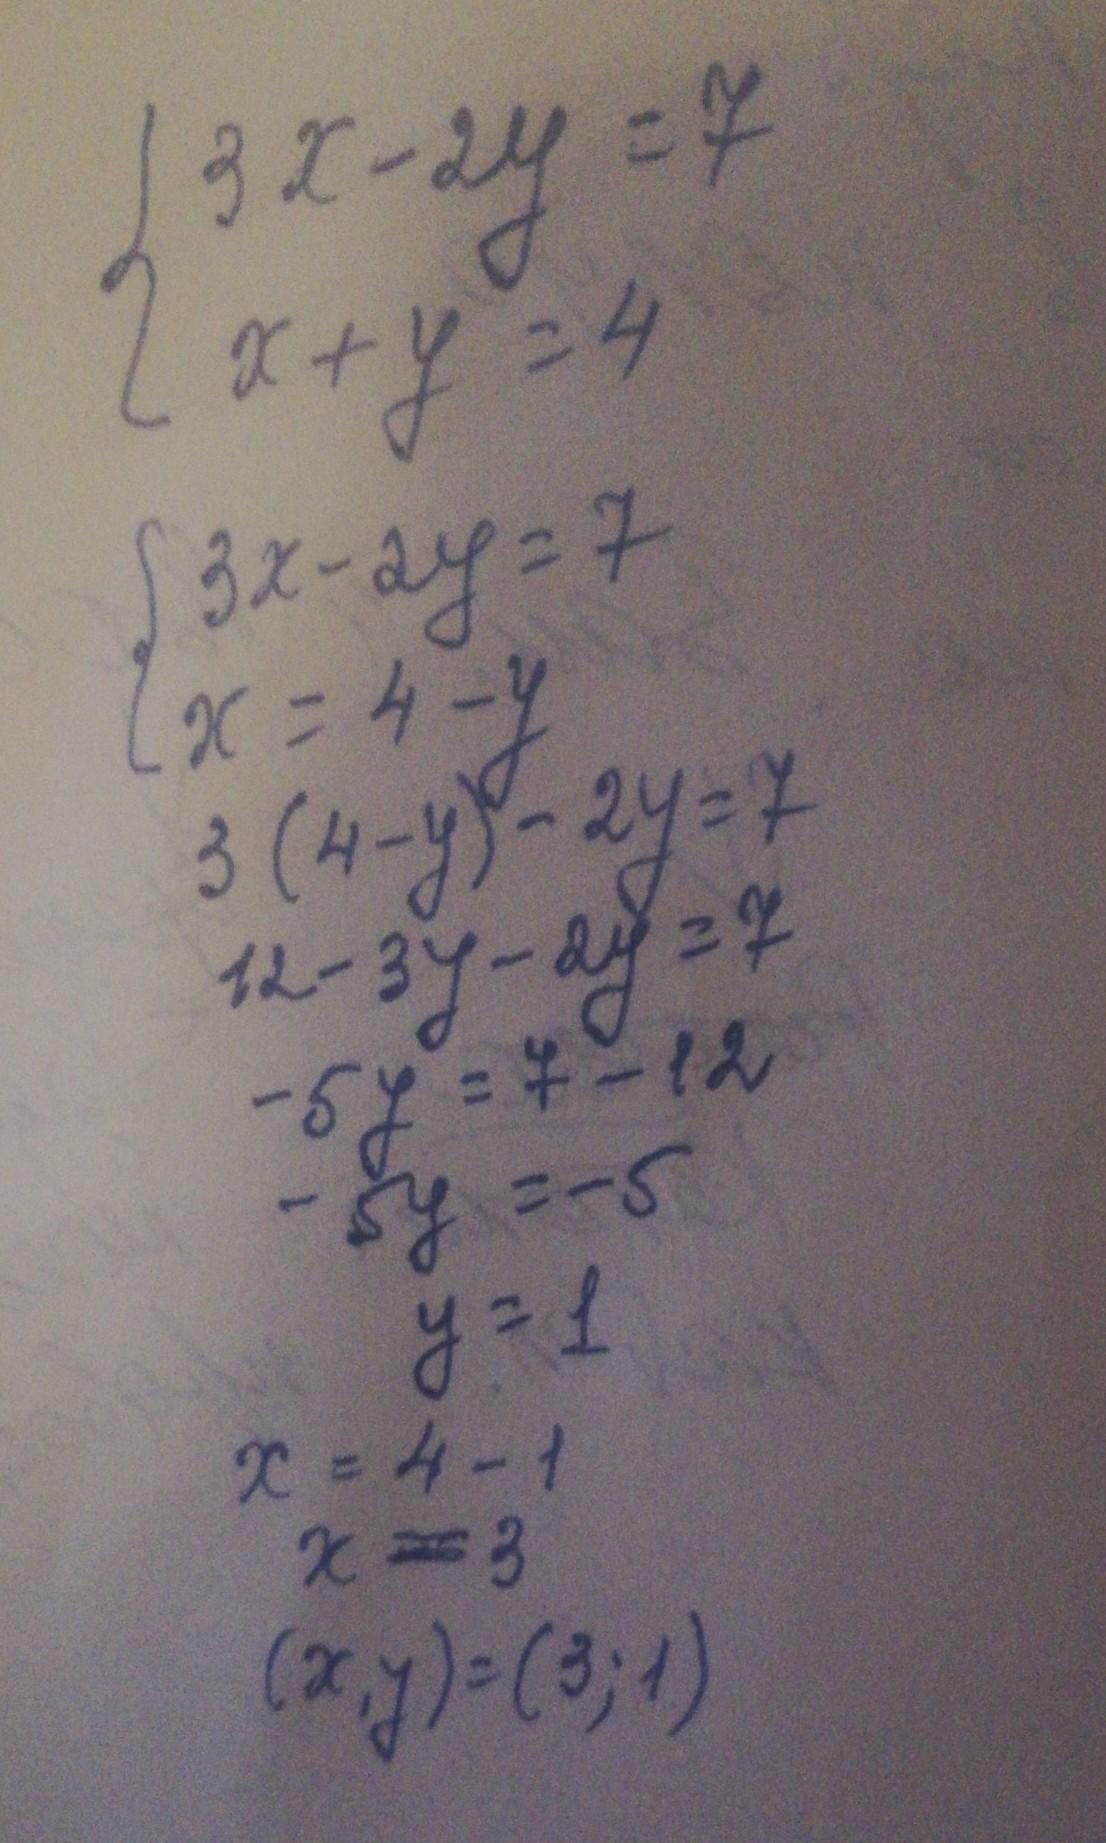 { 3x - 2y = 7
x + y = 4
{ 3x - 2y = 7
x = 4 - y
3 (4 - y) - 2y = 7
12 - 3y - 2y = 7
-5y = 7 - 12
-5y = -5
y = 1
x = 4 - 1
x = 3
(x, y) = (3; 1)